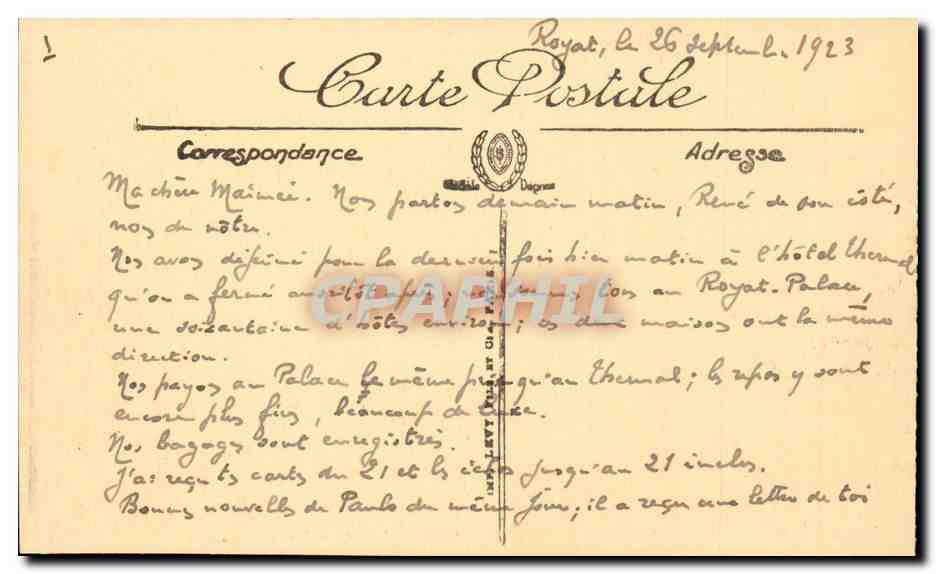 1
Royat, le 26 septembre 1923
Carte Postale
Correspondance
Adresse
Ma chère Maimée. Nous partons demain matin, René de son côté,
nous du nôtre.
Nous avons déjeuné pour la dernière fois hier matin à l'hôtel thermal
qu'on a fermé aussitôt après; nous sommes tous au Royat-Palace,
une soixantaine d'hôtes environ; les deux maisons ont la même
direction.
Nous payons au Palace le même prix qu'au thermal; les repas y sont
encore plus fins, beaucoup de luxe.
Nos bagages sont enregistrés.
J'ai reçu tes cartes du 21 et les échos jusqu'au 21 inclus.
Bonnes nouvelles de Paulo du même jour; il a reçu une lettre de toi
IMP. LEVY FILS ET Cie, PARIS
CPAPHIL